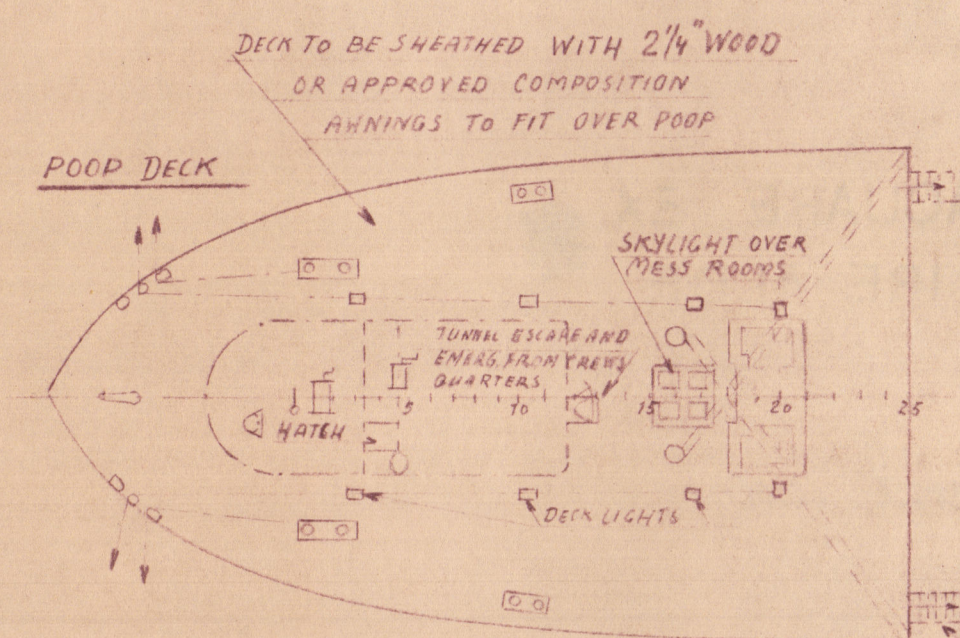 DECK TO BE SHEATHED WITH 2¼" WOOD
OR APPROVED COMPOSITION
AWNINGS TO FIT OVER POOP
POOP DECK
SKYLIGHT OVER
MESS ROOMS
TUNNEL ESCAPE AND
EMERG. FROM CREWS
QUARTERS
5 10 15 20 25
HATCH
DECK LIGHTS